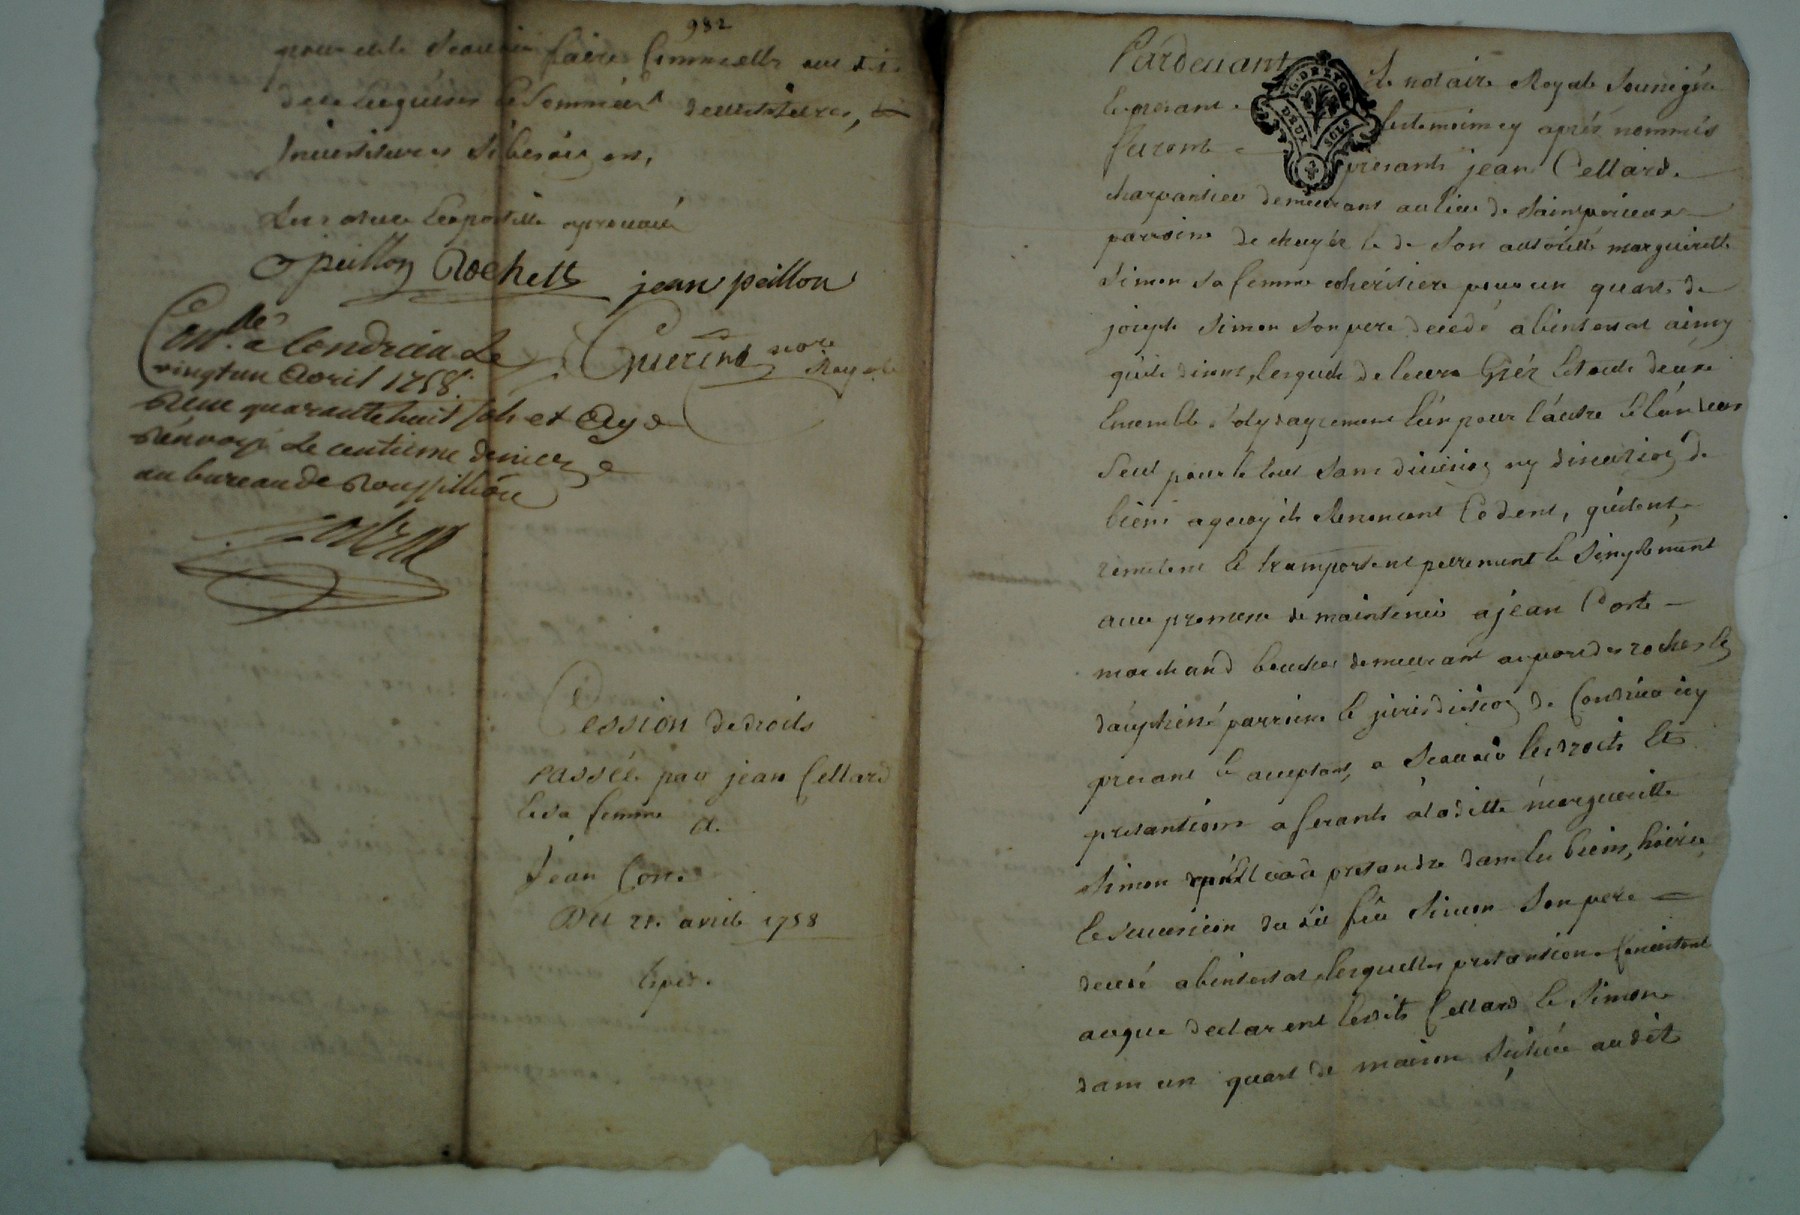 982
pour et le
faire comme elle
de ce requises
Investitures si besoin est,
approuvé
peillon Rochett jean peillon
Con.lé a Condrieu Le
vingt un avril 1758.
Reçu quarante huit sols et ay
renvoyé Le centieme denier
au bureau de Roussillion
Guerin nore
Royal
Cession de droits
passée par jean Cellard
et sa femme
a
Jean
Du 21. avril 1758
Expéd.
Pardevant le notaire Royal soussigné
G. DE LYON
DEUX SOLS
et presant les temoins cy après nommés
furent presants jean Cellard
charpantier demeurant au lieu de
paroisse de chuyér et de son autorité marguerite
Simon sa femme coheritiere pour un quart de
joseph Simon son pere decedé abintestat ainsy
qu'ils disent, lesquels de leurs gréz et tous deux
Ensemble solidairement l'un pour l'autre et l'un deux
seul pour le tout sans division ny discution de
biens a quoy ils Renoncent Cedent, quittent
remettent et transportent purement et simplement
avec promesse de maintenir a jean
marchand boucher demeurant au port des roches en
dauphiné parroisse et jurisdiction de Condrieu icy
presant et acceptant, a sçavoir les droits et
pretantions aferants a laditte marguerite
Simon a pretandre dans les biens, hoirie
et succession du dit feû Simon son pere
decedé abintestat, lesquelles pretantions consistent
ainsy que declarent lesdits Cellard et Simon
dans un quart de maison située audit